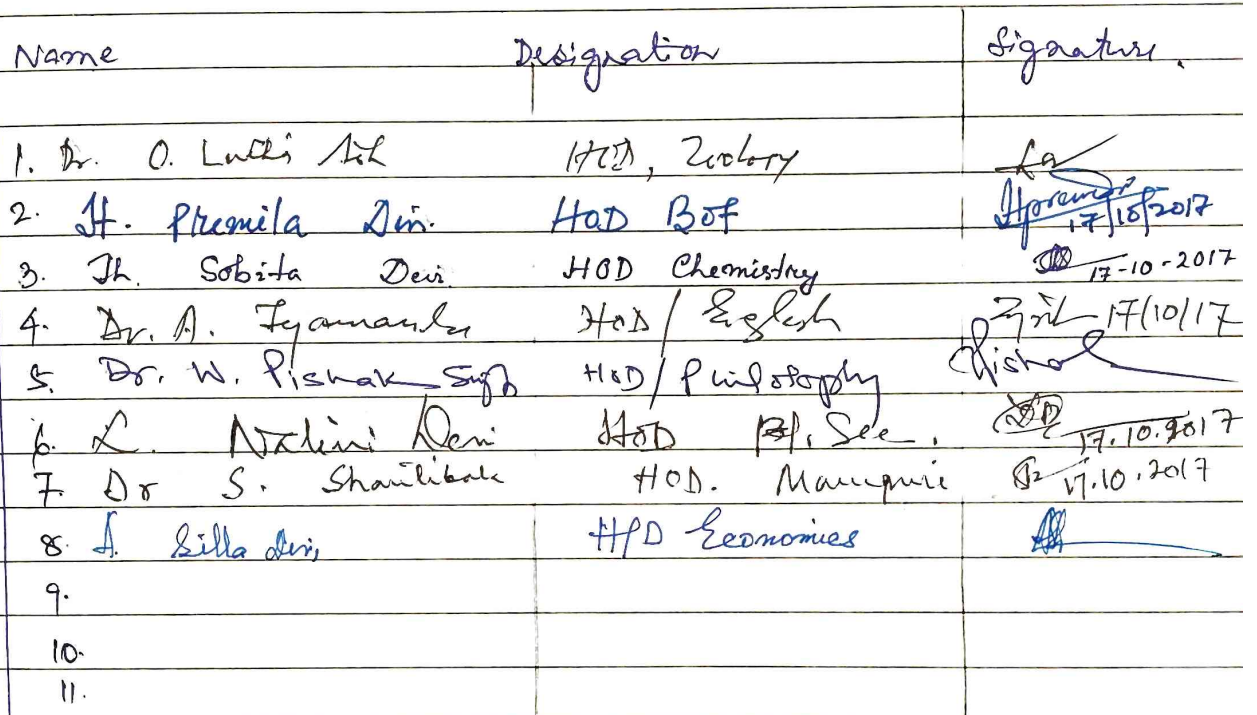 Name Designation Signature.
1. Dr. O. HOD, Zoology
2. H. Premila Devi. HOD Bot 17/10/2017
3. Th. Sobita Devi HOD Chemistry 17-10-2017
4. Dr. A. HOD/ English 17/10/17
5. Dr. W. Pishak Singh HOD/ Philosophy
6. L. Nalini Devi HOD Pl. Sce. 17.10.2017
7. Dr S. Shantibala HOD. Manipuri 17.10.2017
8. A. Silla devi, HOD Economics
9.
10.
11.